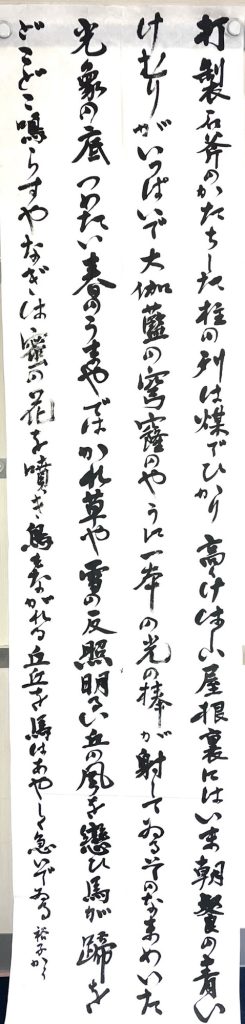 打製石斧のかたちした柱の列は煤でひかり高くけはしい屋根裏にはいま朝餐の青い
けむりがいっぱいで大伽藍の穹窿のやうに一本の光の棒が射してゐるそのなまめいた
光象の底つめたい春のうまやではかれ草や雪の反照明るい丘の風を戀ひ馬が蹄を
ごとごと鳴らすやなぎは蜜の花を噴き鳥はながれる丘丘を馬はあやしく急いでゐる 裕子かく